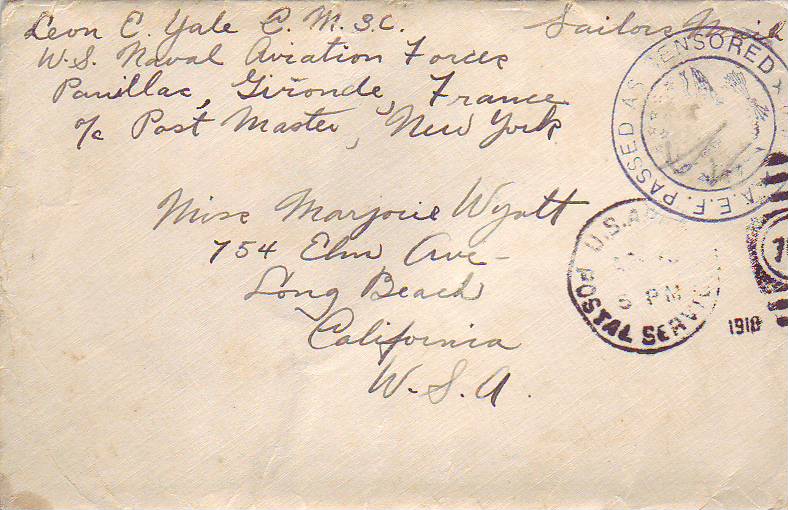 Leon E. Yale C. M. 3. C.
Sailors Mail
U.S. Naval Aviation Forces
Pauillac, Gironde, France
c/o Post Master, New York
PASSED AS CENSORED
A.E.F.
Miss Marjorie Wyatt
754 Elm Ave-
Long Beach
California
U.S.A.
U.S. POSTAL SERVICE
PM
1918